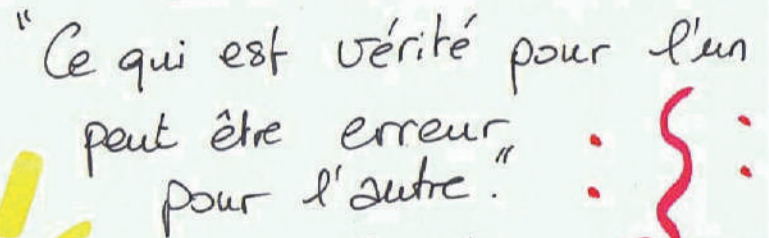 "Ce qui est vérité pour l'un
peut être erreur
pour l'autre."